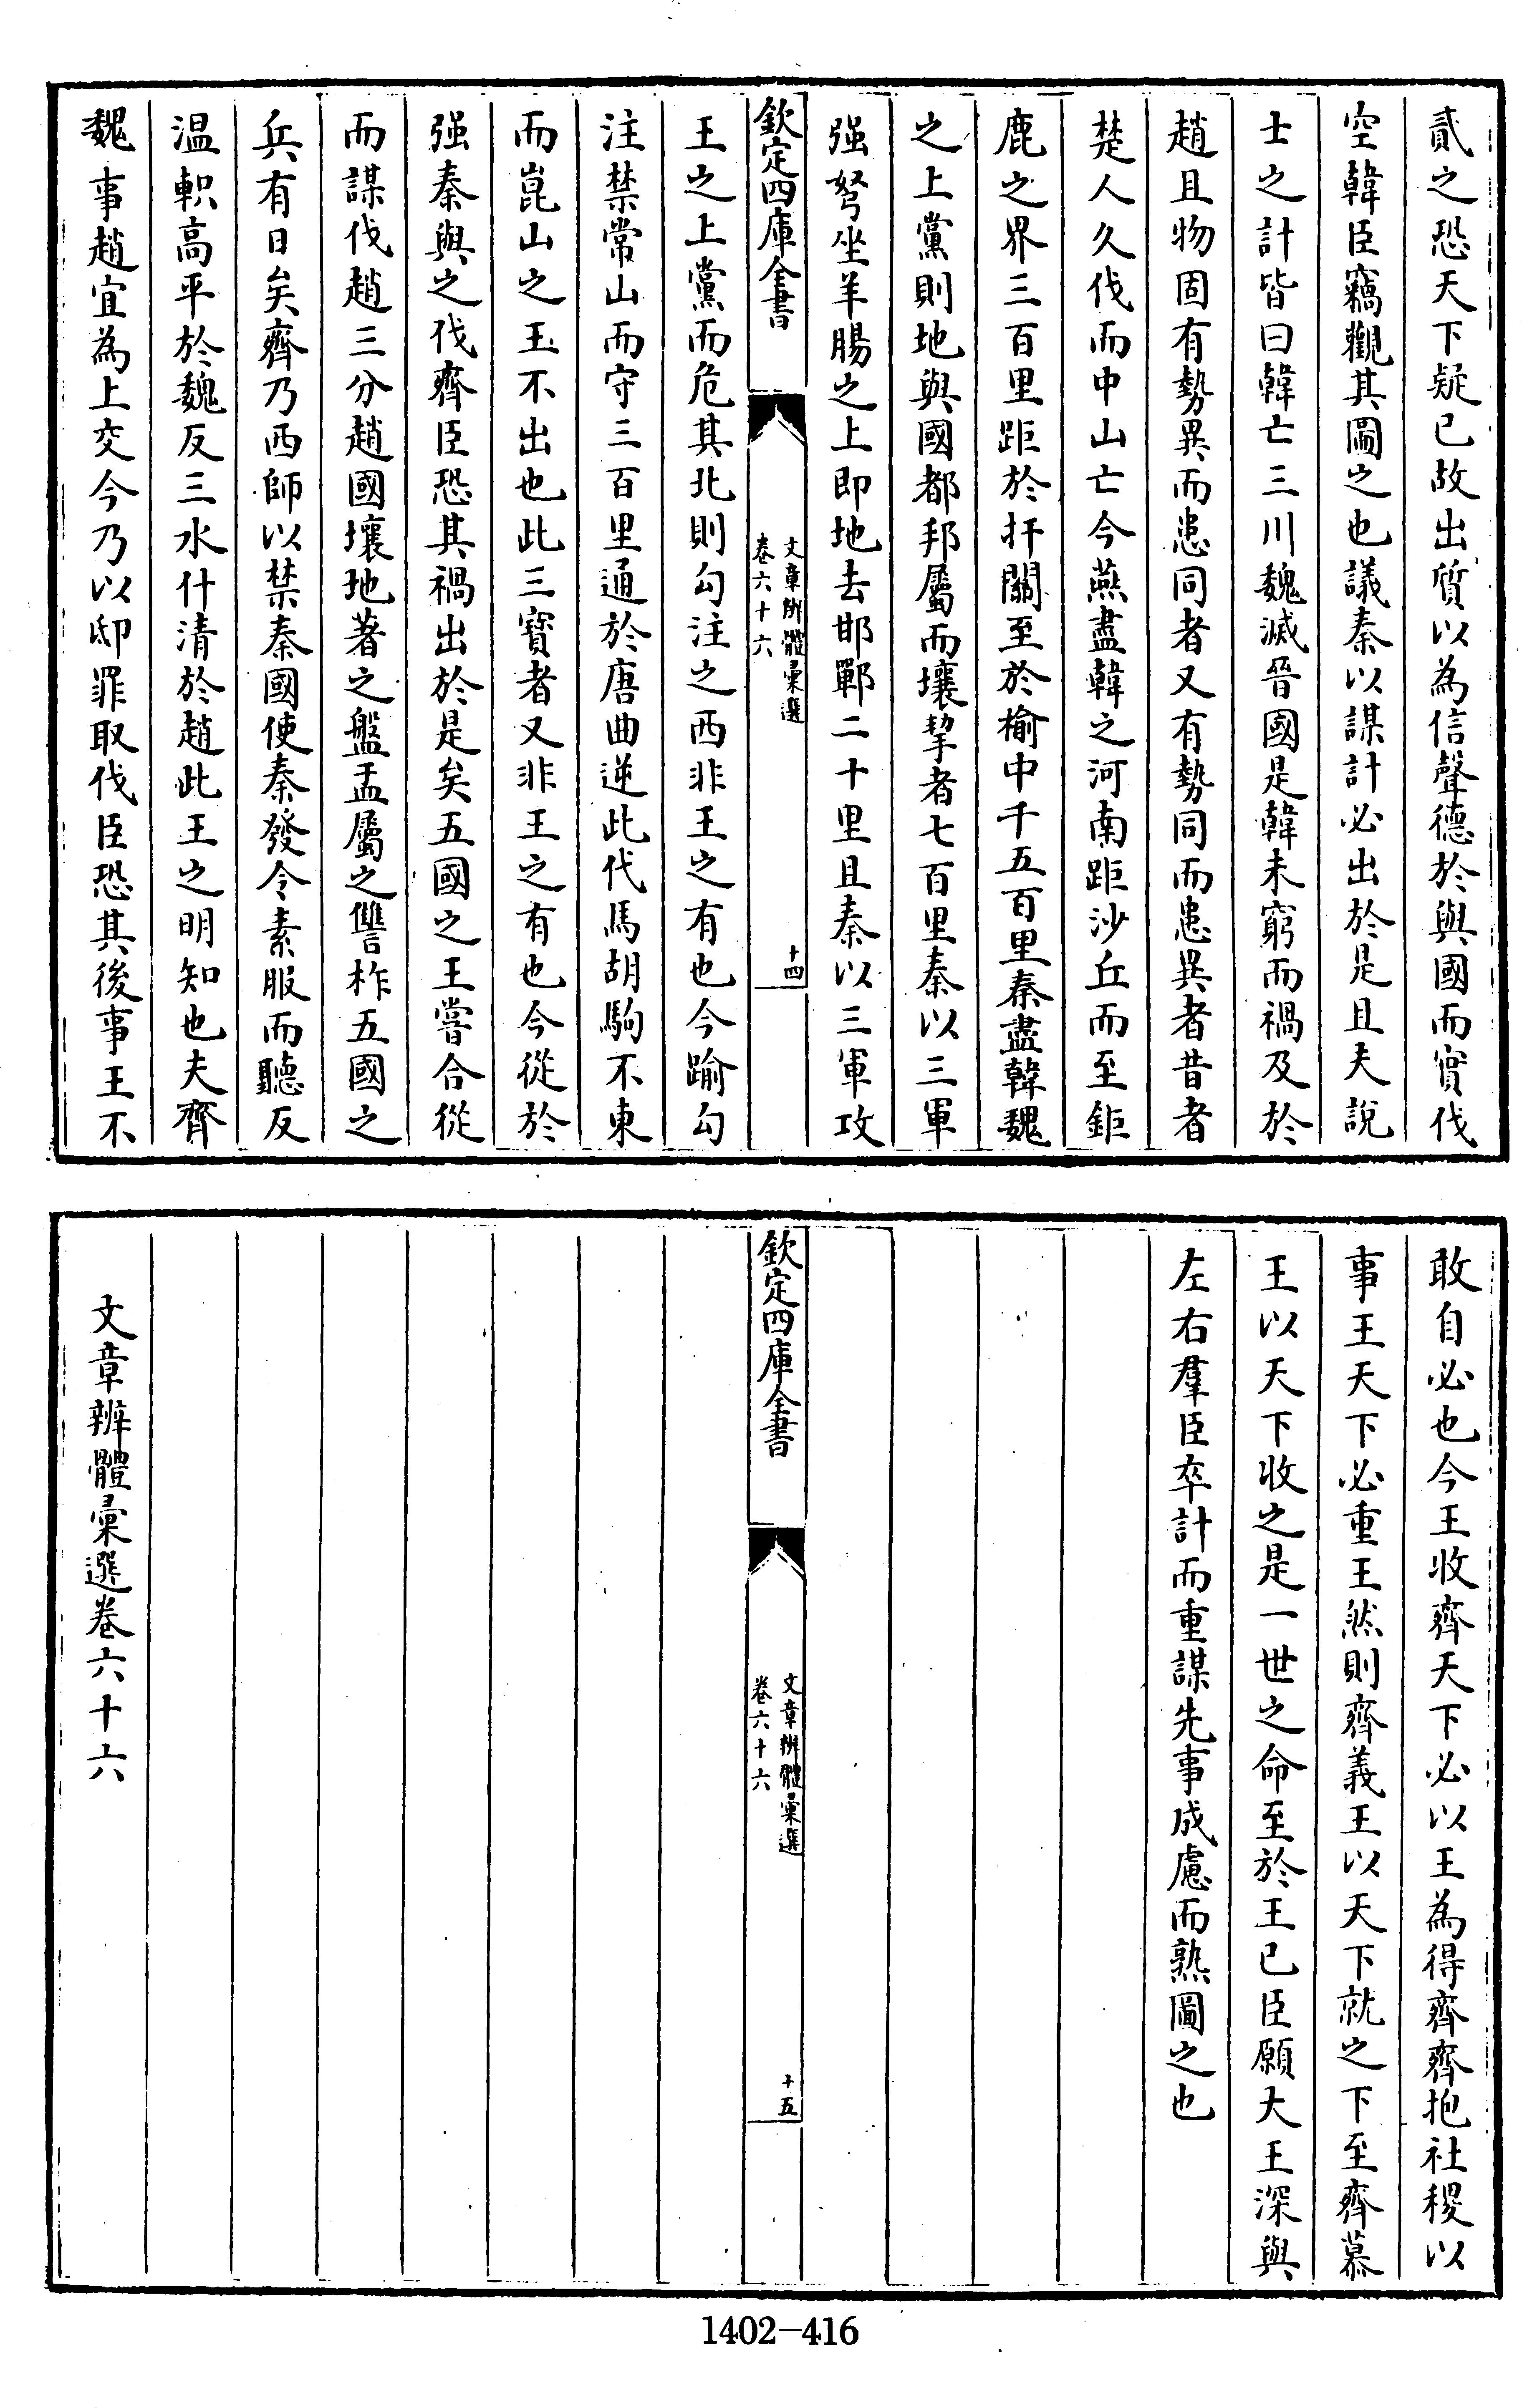 貳之恐天下疑已故出質以為信聲德於與國而實伐
空韓臣竊觀其圖之也議秦以謀計必出於是且夫說
士之計皆曰韓亡三川魏滅晉國是韓未窮而禍及於
趙且物固有勢異而患同者又有勢同而患異者昔者
楚人久伐而中山亡今燕盡韓之河南距沙丘而至鉅
鹿之界三百里距於扞關至於榆中千五百里秦盡韓魏
之上黨則地與國都邦屬而壤挈者七百里秦以三軍
强弩坐羊腸之上即地去邯鄲二十里且秦以三軍攻
欽定四庫全書
文章辨體彙選
卷六十六
十四
王之上黨而危其北則勾注之西非王之有也今踰勾
注禁常山而守三百里通於唐曲逆此代馬胡駒不東
而崑山之玉不出也此三寳者又非王之有也今從於
强秦與之伐齊臣恐其禍出於是矣五國之王嘗合從
而謀伐趙三分趙國壤地著之盤盂屬之讐柞五國之
兵有日矣齊乃西師以禁秦國使秦發令素服而聽反
温軹高平於魏反三水什清於趙此王之明知也夫齊
魏事趙宜為上交今乃以邸罪取伐臣恐其後事王不
敢自必也今王收齊天下必以王為得齊齊抱社稷以
事王天下必重王然則齊義王以天下就之下至齊慕
王以天下收之是一世之命至於王已臣願大王深與
左右羣臣卒計而重謀先事成慮而熟圖之也
欽定四庫全書
文章辨體彙選
卷六十六
十五
文章辨體彙選卷六十六
1402-416